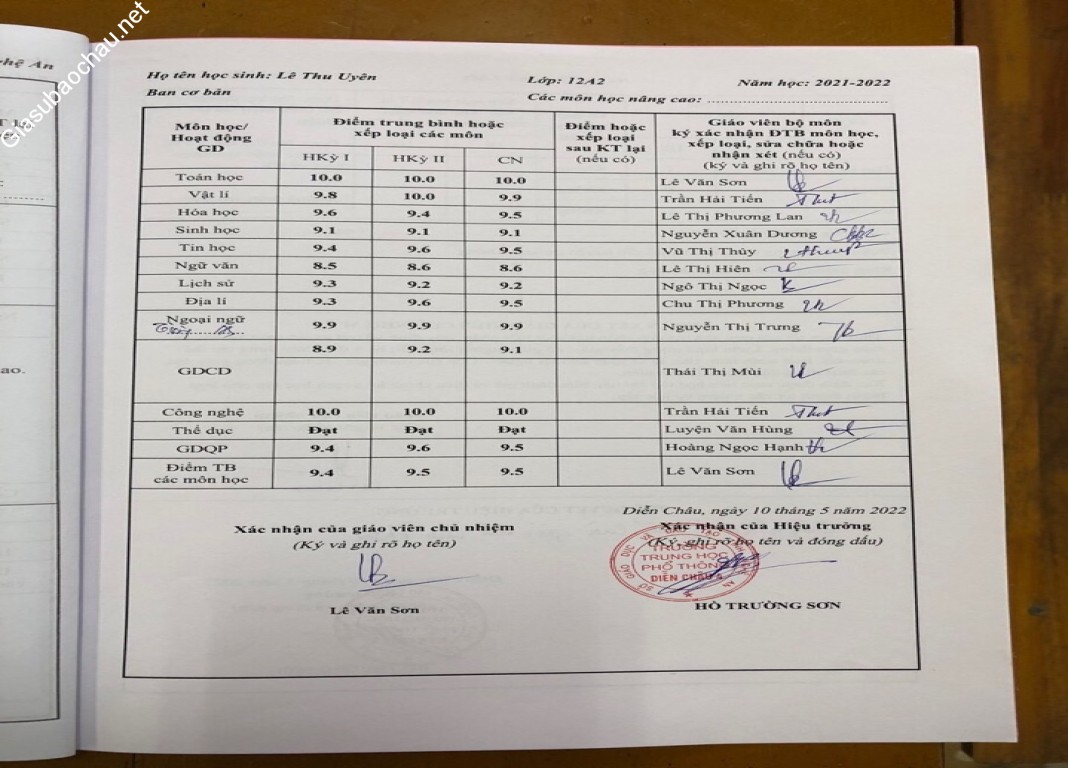 Giasubaochau.net
ghệ An
ao.
Họ tên học sinh: Lê Thu Uyên Lớp: 12A2 Năm học: 2021-2022
Ban cơ bản Các môn học nâng cao: ........................................
Môn học/ Hoạt động GD Điểm trung bình hoặc xếp loại các môn Điểm hoặc xếp loại sau KT lại (nếu có) Giáo viên bộ môn ký xác nhận ĐTB môn học, xếp loại, sửa chữa hoặc nhận xét (nếu có) (ký và ghi rõ họ tên)
HKỳ I HKỳ II CN
Toán học 10.0 10.0 10.0 Lê Văn Sơn
Vật lí 9.8 10.0 9.9 Trần Hải Tiến
Hóa học 9.6 9.4 9.5 Lê Thị Phương Lan
Sinh học 9.1 9.1 9.1 Nguyễn Xuân Dương
Tin học 9.4 9.6 9.5 Vũ Thị Thủy
Ngữ văn 8.5 8.6 8.6 Lê Thị Hiên
Lịch sử 9.3 9.2 9.2 Ngô Thị Ngọc
Địa lí 9.3 9.6 9.5 Chu Thị Phương
Ngoại ngữ 9.9 9.9 9.9 Nguyễn Thị Trưng
8.9 9.2 9.1
GDCD Thái Thị Mùi
Công nghệ 10.0 10.0 10.0 Trần Hải Tiến
Thể dục Đạt Đạt Đạt Luyện Văn Hùng
GDQP 9.4 9.6 9.5 Hoàng Ngọc Hạnh
Điểm TB các môn học 9.4 9.5 9.5 Lê Văn Sơn
Diễn Châu, ngày 10 tháng 5 năm 2022
Xác nhận của giáo viên chủ nhiệm Xác nhận của Hiệu trưởng
(Ký và ghi rõ họ tên) (Ký, ghi rõ họ tên và đóng dấu)
TRƯỜNG
TRUNG HỌC
PHỔ THÔNG
DIỄN CHÂU
Lê Văn Sơn HỒ TRƯỜNG SƠN